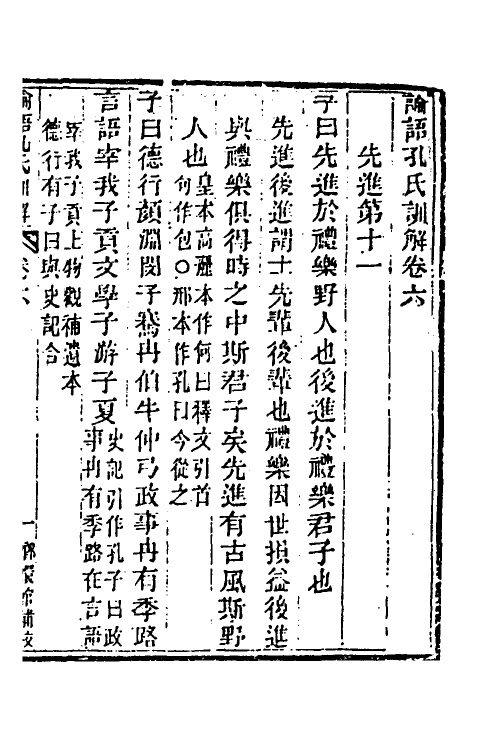 論語孔氏訓解卷六
先進第十一
子曰先進於禮樂野人也後進於禮樂君子也
先進後進謂士先輩後輩也禮樂因世損益後進
與禮樂俱得時之中斯君子矣先進有古風斯野
人也皇本高麗本作何曰釋文引首
句作包〇邢本作孔曰今從之
子曰德行顏淵閔子騫冉伯牛仲弓政事冉有季路
言語宰我子貢文學子游子夏史記引作孔子曰政
事冉有季路在言語
宰我子貢上物觀補遺本
德行有子曰與史記合
論語孔氏訓解 卷六 一